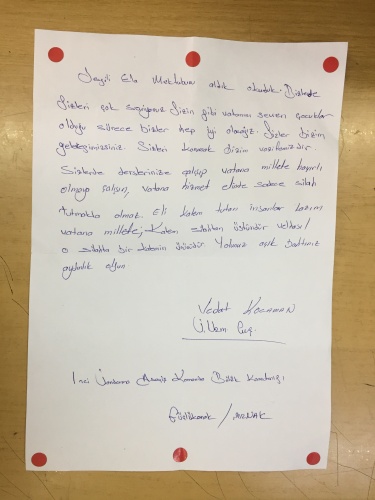 Sevgili Ela Mektubunu aldık okuduk. Bizlerde
Sizleri çok seviyoruz Sizin gibi vatanını seven çocuklar
olduğu sürece bizler hep iyi olacağız. Sizler bizim
geleceğimizsiniz. Sizleri korumak bizim vazifemizdir.
Sizlerde derslerinize çalışıp vatana millete hayırlı
olmaya çalışın, vatana hizmet elinde sadece silah
tutmakla olmaz. Eli kalem tutan insanlar lazım
vatana millete, Kalem silahtan üstündür velhasıl
o silahta bir kalemin ürünüdür. Yolunuz açık bahtınız
aydınlık olsun
Vedat KOCAMAN
Ülkem
1 nci Jandarma Komando Bölük Komutanlığı
Güçlükonak / ŞIRNAK